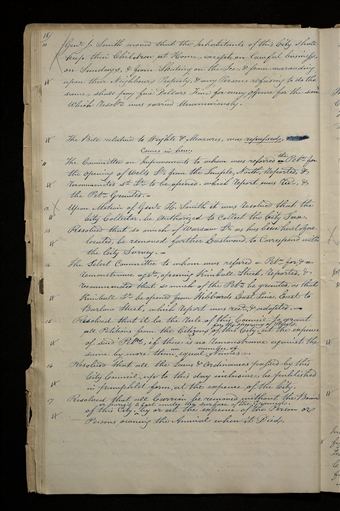 Geo. J. Smith moved that the Inhabitants of this City shall
keep their Children at Home, except on Lawful business,
on Sundays, & from Skating on the Ice, & from marauding
upon their Neighbours Property, & any Persons refusing to do the
same, shall pay five Dollars Fine for every offence for the same
Which Resn. was carried Unanimously.
The Bill relative to Weights & Measures, was
The Committee on Improvements to whom was refered the Pet. for
the opening of Wells St. from the Temple, North, Reported, &
Recommended st. St. to be opened, which Report was Rec., &
the Petn. Granted.
Upon Motion of Geo. J. Smith it was Resolved that the
City Collector be Authorized to Collect the City Tax.
Resolved that so much of Warsaw St. as has been
located, be removed further Eastward to Correspond with
the City Survey.
The Select Committee to whom was refered a Pet. for, & a
remonstrance agst. opening Kimball Street, Reported, &
recommended that so much of the Petn. be granted as that
Kimball St. be opened from Hibbards East Line, East to
Barlow Street, which Report was rec. & adopted.
Resolved that it be the Rule of this Council to grant
all Petitions from the Citizens of this City, at the expense
for the opening of Roads
of said Petrs, if there is no Remonstrance against the
same by more than equal Names
number of
Resolved that all the Laws & Ordinances passed by this
City Council, up to this day inclusive, be published
in pamphlet form, at the expense of the City.
17 Resolved that all Carrion be removed without the Bounds
of this City, by or at the expense of the Person or
Persons owning the Animal when it Died.